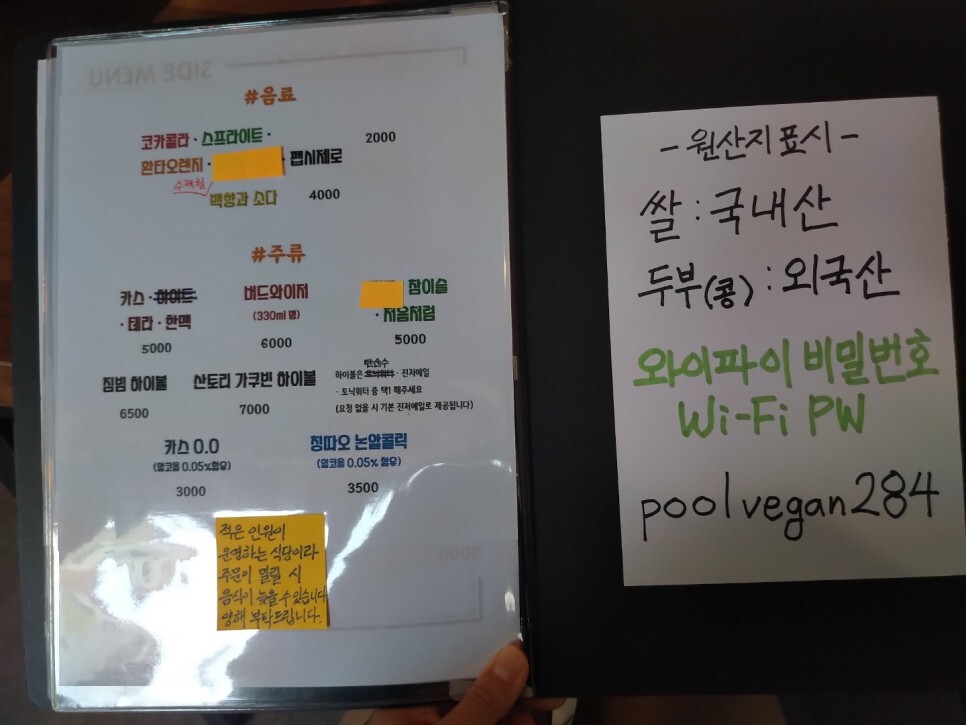 SIDE MENU
#음료
코카콜라 · 스프라이트 · 2000
환타오렌지 · 펩시제로
수제청
백향과 소다 4000
#주류
카스 · 하이트
· 테라 · 한맥
5000
버드와이저
(330ml 병)
6000
참이슬
· 처음처럼
5000
짐빔 하이볼
6500
산토리 가쿠빈 하이볼
7000
탄산수
하이볼은 토닉워터 · 진저에일
· 토닉워터 중 택1 해주세요
(요청 없을 시 기본 진저에일로 제공됩니다)
카스 0.0
(알코올 0.05% 함유)
3000
칭따오 논알콜릭
(알코올 0.05% 함유)
3500
적은 인원이
운영하는 식당이라
주문이 밀릴 시
음식이 늦을 수 있습니다
양해 부탁드립니다.
- 원산지 표시 -
쌀 : 국내산
두부(콩) : 외국산
와이파이 비밀번호
Wi-Fi PW
poolvegan284